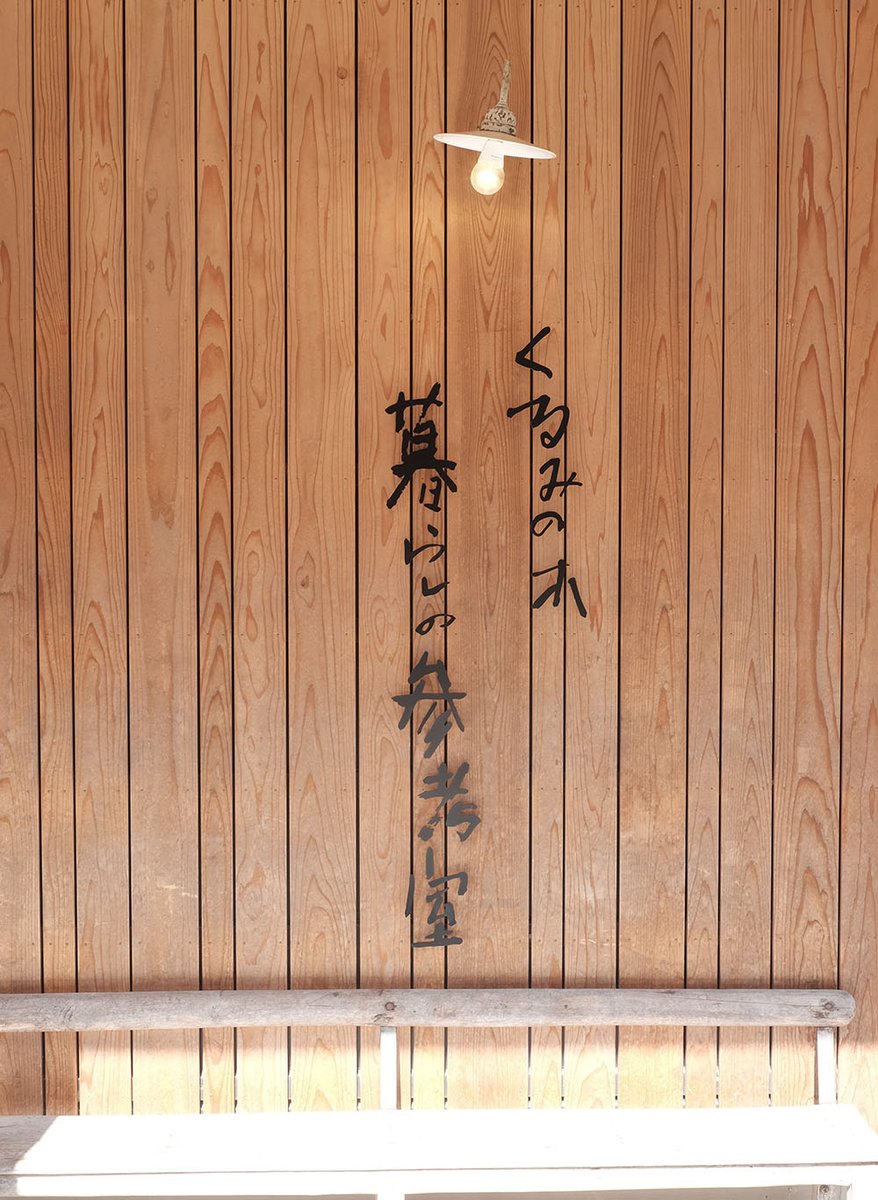 くるみの木
暮らしの参考室